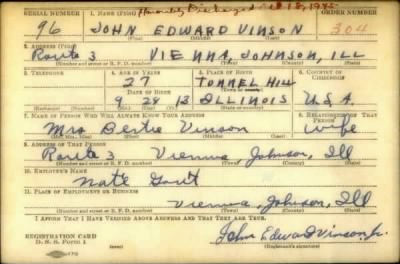 Honorably Discharged Oct 18, 1945
SERIAL NUMBER 1. NAME (Print) ORDER NUMBER
96 JOHN EDWARD VINSON 304
(First) (Middle) (Last)
2. ADDRESS (Print)
Route 3 VIENNA, JOHNSON, ILL
(Number and street or R. F. D. number) (Town) (County) (State)
3. TELEPHONE 4. AGE IN YEARS 5. PLACE OF BIRTH 6. COUNTRY OF CITIZENSHIP
27 TUNNEL HILL
DATE OF BIRTH (Town or county)
9 28 13 ILLINOIS U.S.A.
(Mo.) (Day) (Yr.) (State or country)
7. NAME OF PERSON WHO WILL ALWAYS KNOW YOUR ADDRESS 8. RELATIONSHIP OF THAT PERSON
Mrs Bertie Vinson wife
9. ADDRESS OF THAT PERSON
Route 3 Vienna, Johnson, Ill
(Number and street or R. F. D. number) (Town) (County) (State)
10. EMPLOYER'S NAME
Nate
11. PLACE OF EMPLOYMENT OR BUSINESS
Vienna, Johnson, Ill
(Number and street or R. F. D. number) (Town) (County) (State)
I AFFIRM THAT I HAVE VERIFIED ABOVE ANSWERS AND THAT THEY ARE TRUE.
REGISTRATION CARD
D. S. S. Form 1
John Edward Vinson, Jr.
(Registrant's signature)